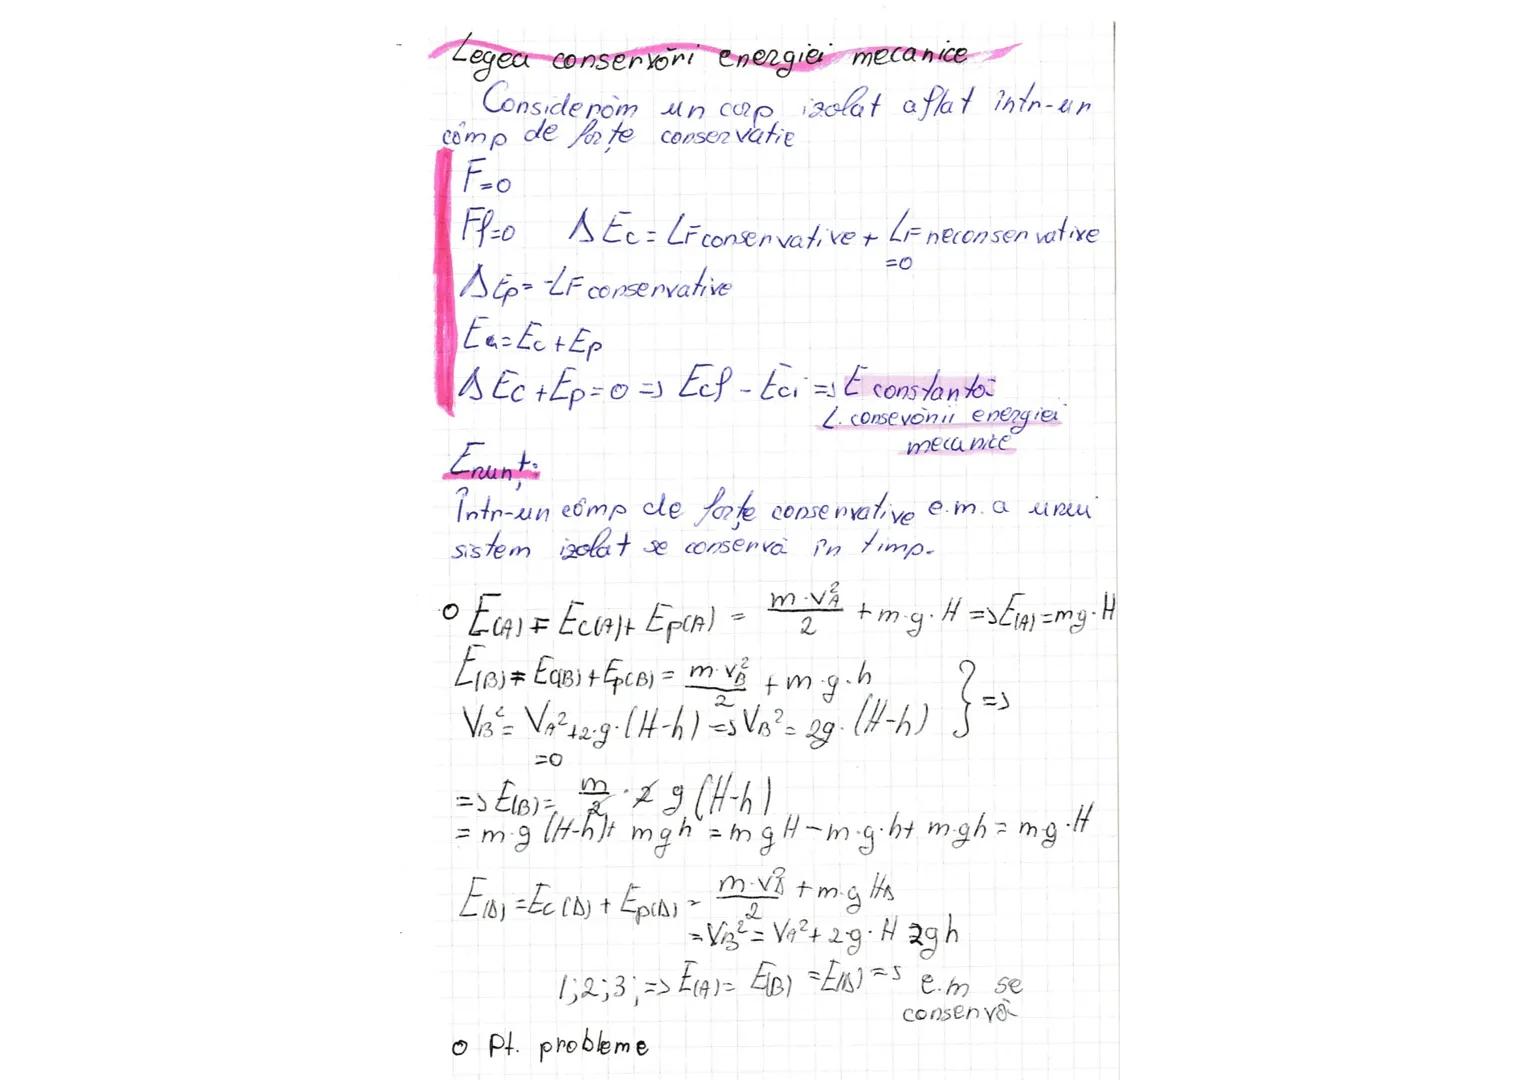 Legea conservări energiei mecanice
Considerăm un corp izolat aflat într-un
câmp de forțe conservatie
F=0
Ff=0 ΔEc = LF conservative + LF neconservative
=0
ΔEp = -LF conservative
Ea = Ec + Ep
ΔEc + Ep = 0 => Ecf - Eci => E constantă
L. consevării energiei
mecanice
Enunț:
Într-un câmp de forțe conservative e.m. a unui
sistem izolat se conservă în timp.
o E(A) = Ec(A) + Ep(A) = m·vA²/2 + m·g·H => E(A) = mg·H
E(B) = Ec(B) + Ep(B) = m·vB²/2 + m·g·h } =>
VB² = VA² + 2·g·(H-h) => VB² = 2g·(H-h)
=0
=> E(B) = m/2 · 2 g (H-h)
= m·g (H-h) + mgh = mgH - m·g·h + m·gh = mg·H
E(D) = Ec(D) + Ep(D) = m·v²/2 + m·g H
= VB² = VA² + 2·g·H 2gh
1;2;3; => E(A) = E(B) = E(D) => e.m se
conservă
o Pt. probleme